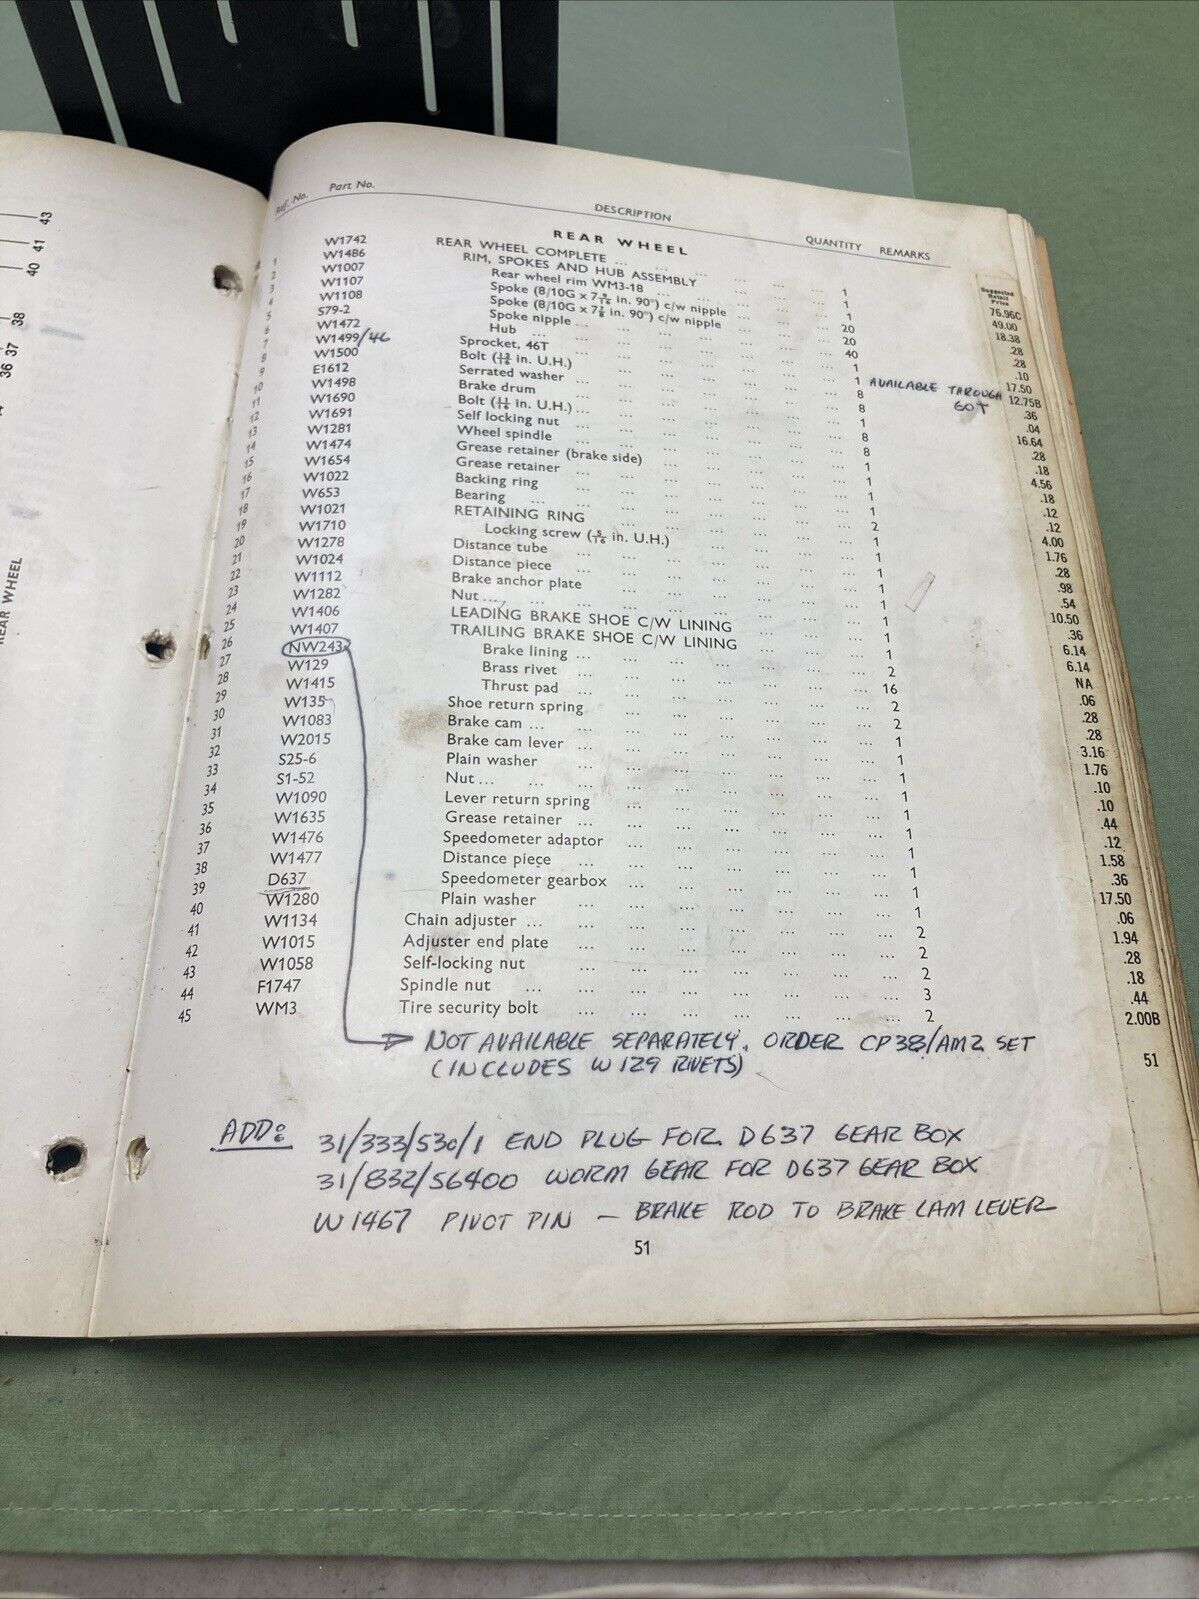 43
41
40
38
37
36
REAR WHEEL
Ref. No. Part No. DESCRIPTION QUANTITY REMARKS
Suggested Retail Price
REAR WHEEL
1 W1742 REAR WHEEL COMPLETE ... ... ... 1 76.96C
2 W1486 RIM, SPOKES AND HUB ASSEMBLY ... 1 49.00
3 W1007 Rear wheel rim WM3-18 ... 1 18.38
4 W1107 Spoke (8/10G x 7 9/16 in. 90°) c/w nipple 20 .28
5 W1108 Spoke (8/10G x 7 7/8 in. 90°) c/w nipple 20 .28
6 S79-2 Spoke nipple ... 40 .10
7 W1472 Hub ... 1 17.50
8 W1499/46 Sprocket, 46T ... 1 AVAILABLE THROUGH 60T 12.75B
9 W1500 Bolt (13/16 in. U.H.) ... 8 .36
10 E1612 Serrated washer ... 8 .04
11 W1498 Brake drum ... 1 16.64
12 W1690 Bolt (11/16 in. U.H.) ... 8 .28
13 W1691 Self locking nut ... 8 .18
14 W1281 Wheel spindle ... 1 4.56
15 W1474 Grease retainer (brake side) ... 1 .18
16 W1654 Grease retainer ... 1 .12
17 W1022 Backing ring ... 1 .12
18 W653 Bearing ... 2 4.00
19 W1021 RETAINING RING ... 1 1.76
20 W1710 Locking screw (5/16 in. U.H.) ... 1 .28
21 W1278 Distance tube ... 1 .98
22 W1024 Distance piece ... 1 .54
23 W1112 Brake anchor plate ... 1 10.50
24 W1282 Nut ... 1 .36
25 W1406 LEADING BRAKE SHOE C/W LINING ... 1 6.14
26 W1407 TRAILING BRAKE SHOE C/W LINING ... 1 6.14
27 NW243 Brake lining ... 2 NA
28 W129 Brass rivet ... 16 .06
29 W1415 Thrust pad ... 2 .28
30 W135 Shoe return spring ... 2 .28
31 W1083 Brake cam ... 1 3.16
32 W2015 Brake cam lever ... 1 1.76
33 S25-6 Plain washer ... 1 .10
34 S1-52 Nut ... 1 .10
35 W1090 Lever return spring ... 1 .44
36 W1635 Grease retainer ... 1 .12
37 W1476 Speedometer adaptor ... 1 1.58
38 W1477 Distance piece ... 1 .36
39 D637 Speedometer gearbox ... 1 17.50
40 W1280 Plain washer ... 1 .06
41 W1134 Chain adjuster ... 2 1.94
42 W1015 Adjuster end plate ... 2 .28
43 W1058 Self-locking nut ... 2 .18
44 F1747 Spindle nut ... 3 .44
45 WM3 Tire security bolt ... 2 2.00B
NOT AVAILABLE SEPARATELY. ORDER CP38/AM2 SET
(INCLUDES W129 RIVETS)
51
ADD: 31/333/530/1 END PLUG FOR D637 GEAR BOX
31/832/56400 WORM GEAR FOR D637 GEAR BOX
W1467 PIVOT PIN – BRAKE ROD TO BRAKE CAM LEVER
51